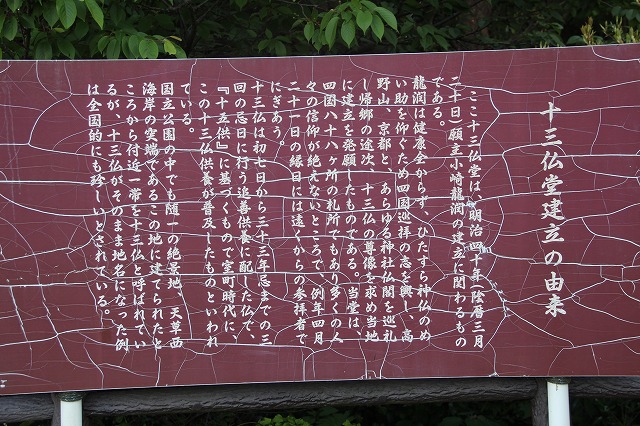 十三仏堂建立の由来
ここ十三仏堂は、明治四十年(陰暦三月
二十日)願主小崎龍潤の建立に関わるもの
である。
龍潤は健康全からず、ひたすら神仏のめ
い助を仰ぐため四国巡祥の志を興し、高
野山、京都と、あらゆる神社仏閣を巡礼
し帰郷の途次、十三仏の尊像を求め当地
に建立を発願したものである。当堂は、
四国八十八ヶ所の札所でもあり多くの人
々の信仰が絶えないところで、例年四月
二十一日の縁日には遠くからの参拝者で
にぎあう。
十三仏は初七日から三十三年忌までの三
回の忌日に行う追善供養に配した仏で、
『十五供』に基づくもので室町時代に、
この十三仏供養が普及したものといわれ
ている。
国立公園の中でも随一の絶景地、天草西
海岸の突端であるこの地に建てられたと
ころから付近一帯を十三仏と呼ばれてい
るが、十三仏がそのまま地名になった例
は全国的にも珍しいとされている。